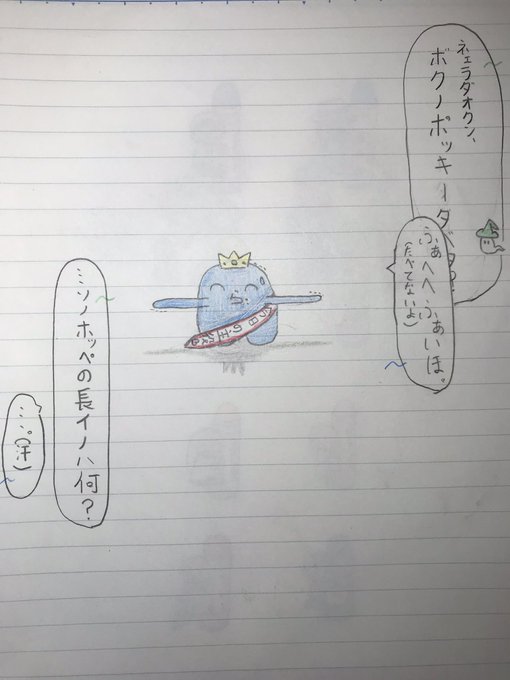 ネェラダオクン、
ボクノポッキータベタ?
ふぁへへふぁいほ。
(たべてないよ)
…ソノホッペの長イノハ何?
…。(汗)
今日の主役